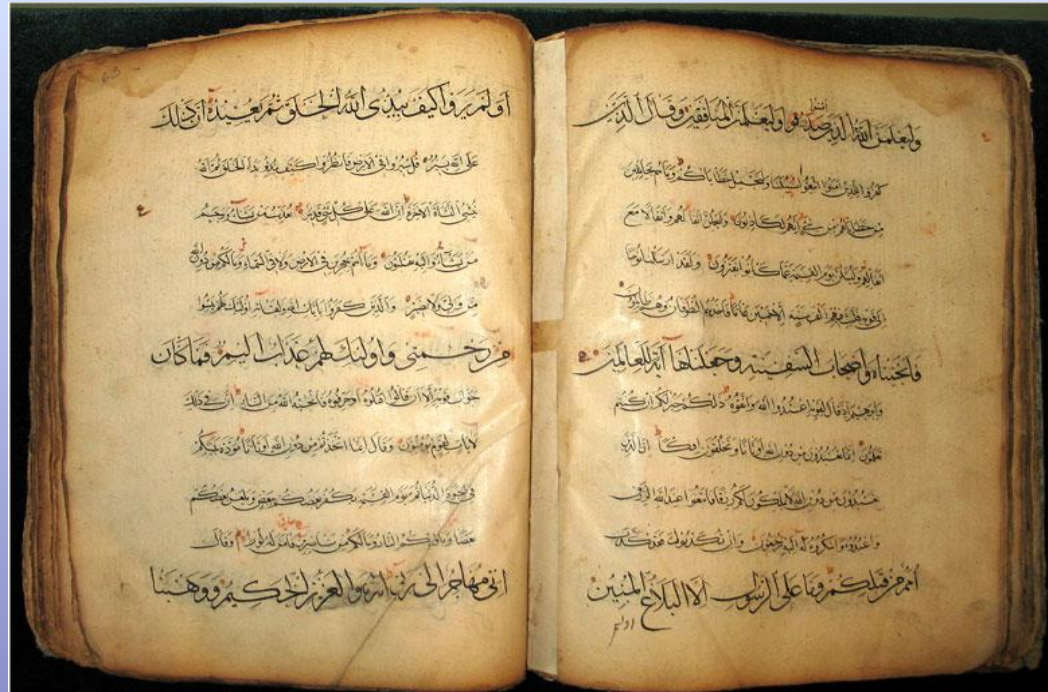 امنوا
وليعلمن الله الذين صدقوا وليعلمن المنافقين وقال الذين
كفروا للذين امنوا اتبعوا سبيلنا ولنحمل خطاياكم وما هم بحاملين
من خطاياهم من شئ انهم لكاذبون وليحملن اثقالهم واثقالا مع
اثقالهم وليسئلن يوم القيمة عما كانوا يفترون ولقد ارسلنا نوحا
الى قومه فلبث فيهم الف سنة الا خمسين عاما فاخذهم الطوفان وهم ظالمون
فانجيناه واصحاب السفينة وجعلناها آية للعالمين
وابرهيم اذ قال لقومه اعبدوا الله واتقوه ذلكم خير لكم ان كنتم
تعلمون انما تعبدون من دون الله اوثانا وتخلقون افكا ان الذين
تعبدون من دون الله لا يملكون لكم رزقا فابتغوا عند الله الرزق
واعبدوه واشكروا له اليه ترجعون وان تكذبوا فقد كذب
امم من قبلكم وما على الرسول الا البلاغ المبين
اولم
اولم يروا كيف يبدئ الله الخلق ثم يعيده ان ذلك
على الله يسير قل سيروا في الارض فانظروا كيف بدا الخلق ثم الله
ينشئ النشأة الاخرة ان الله على كل شئ قدير يعذب من يشاء ويرحم
من يشاء واليه تقلبون وما انتم بمعجزين في الارض ولا في السماء وما لكم من دون الله
من ولى ولا نصير والذين كفروا بايات الله ولقائه اولئك يئسوا
من رحمتي واولئك لهم عذاب اليم فما كان
جواب قومه الا ان قالوا اقتلوه او حرقوه فانجيه الله من النار ان في ذلك
لايات لقوم يؤمنون وقال انما اتخذتم من دون الله اوثانا مودة بينكم
في الحيوة الدنيا ثم يوم القيمة يكفر بعضكم ببعض ويلعن بعضكم
بعضا وماويكم النار وما لكم من ناصرين فامن له لوط وقال
انى مهاجر الى ربى انه هو العزيز الحكيم ووهبنا